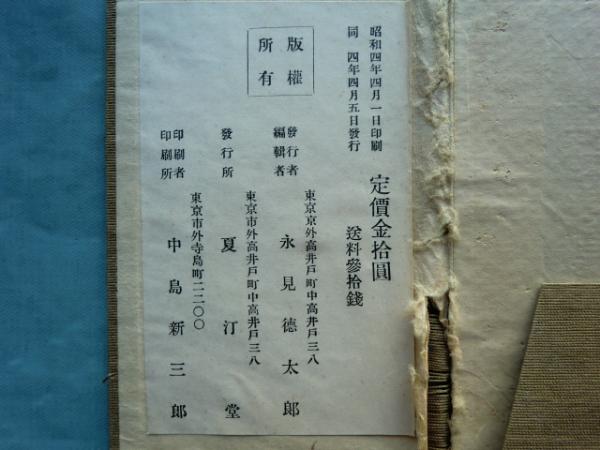 昭和四年四月一日印刷
同 四年四月五日發行
定價金拾圓
送料參拾錢
版權
所有
東京京外高井戸町中高井戸三八
發行者
編輯者
永見德太郎
東京市外高井戸町中高井戸三八
發行所
夏汀堂
東京市外寺島町二二〇〇
印刷者
印刷所
中島新三郎